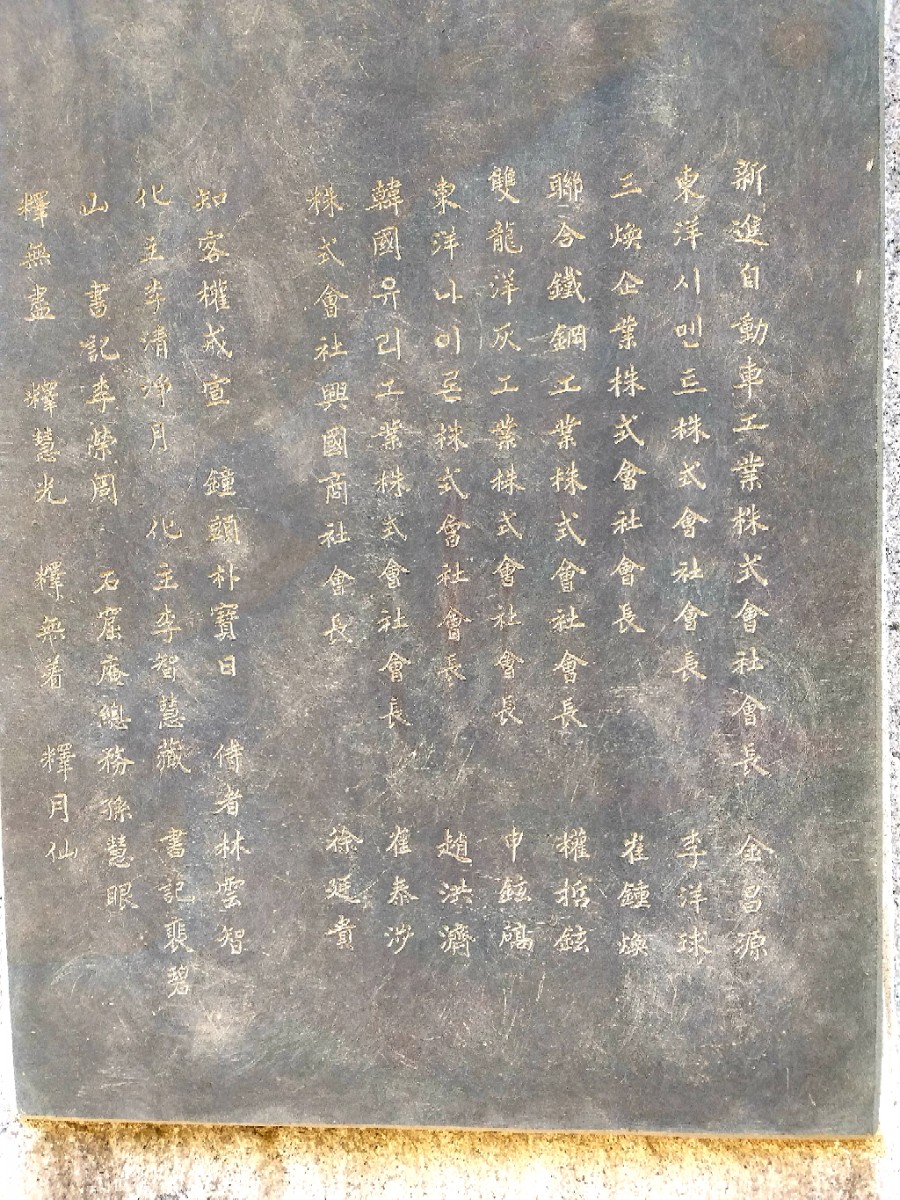 新進自動車工業株式會社會長 金昌源
東洋시멘트株式會社會長 李洋球
三煥企業株式會社會長 崔鍾煥
聯合鐵鋼工業株式會社會長 權哲鉉
雙龍洋灰工業株式會社會長 申鉉碻
東洋나이론株式會社會長 趙洪濟
韓國유리工業株式會社會長 崔泰涉
株式會社興國商社會長 徐廷貴
知客權成宣 鐘頭朴寶日 侍者林雲智
化主李清淨月 化主李智慧藏 書記裵碧
山 書記李榮周 石窟庵總務孫慧眼
釋無盡 釋慧光 釋無着 釋月仙